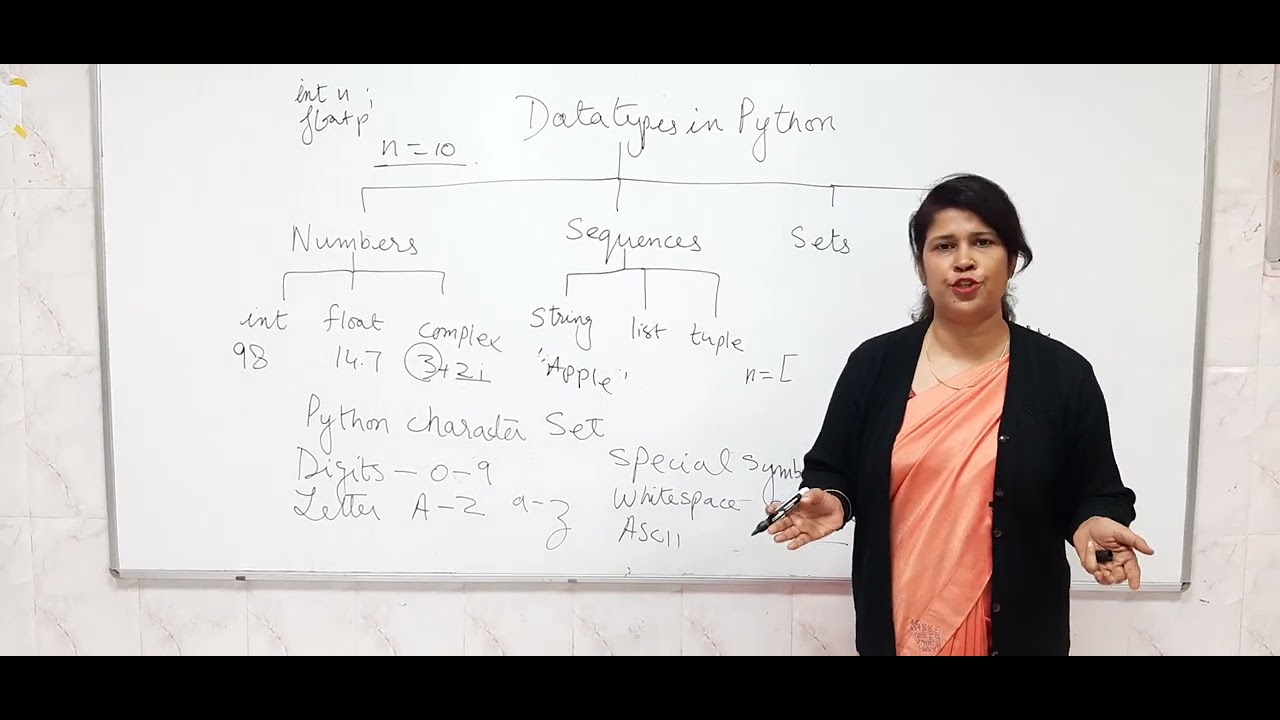 int n ;
float p
Datatypes in Python
n = 10
Numbers
Sequences
Sets
int
float
complex
String
list
tuple
98
14.7
3+2i
"Apple"
n = [
Python character Set
Digits - 0-9
Special Symb
Letter A-Z a-z
Whitespace -
ASCII